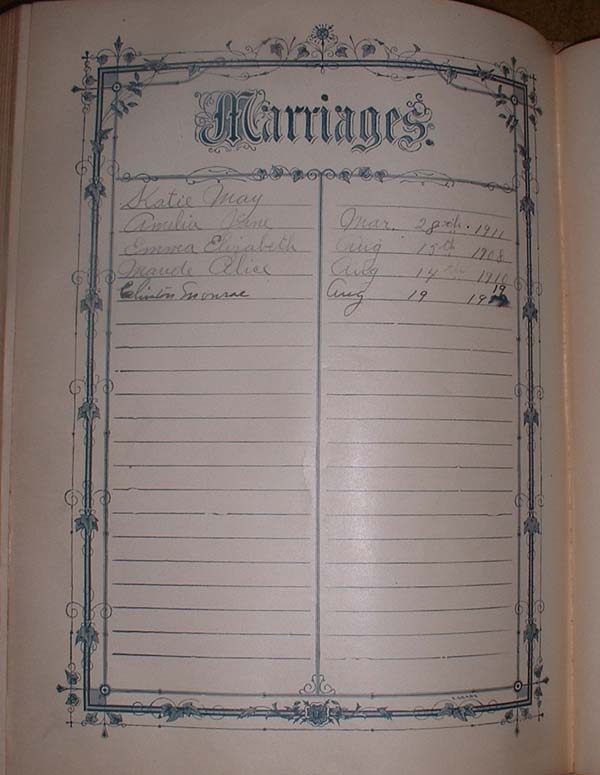 Marriages.
Katie May
Amelia Jane Mar. 28th. 1911
Emma Elizabeth Aug 15th 1908
Maude Alice Aug 14th 1910
Clinton Monroe Aug 19 1919